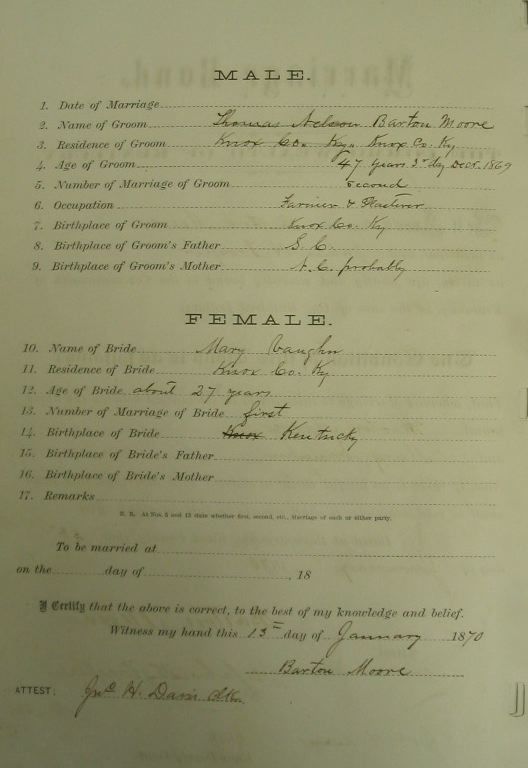 MALE.
1. Date of Marriage
2. Name of Groom Thomas Nelson Barton Moore
3. Residence of Groom Knox Co. Ky. Knox Co. Ky.
4. Age of Groom 47 years 2nd day Decr. 1869
5. Number of Marriage of Groom Second
6. Occupation Farmer & Plasterer
7. Birthplace of Groom Knox Co. Ky
8. Birthplace of Groom's Father S. C.
9. Birthplace of Groom's Mother N. C. probably
FEMALE.
10. Name of Bride Mary Vaughn
11. Residence of Bride Knox Co. Ky
12. Age of Bride about 27 years
13. Number of Marriage of Bride first
14. Birthplace of Bride Knox Kentucky
15. Birthplace of Bride's Father
16. Birthplace of Bride's Mother
17. Remarks
N. B. At Nos. 5 and 13 state whether first, second, etc., Marriage of each or either party.
To be married at
on the day of , 18
I Certify that the above is correct, to the best of my knowledge and belief.
Witness my hand this 13th day of January 1870
Barton Moore
ATTEST: Jno. H. Davis Clk.